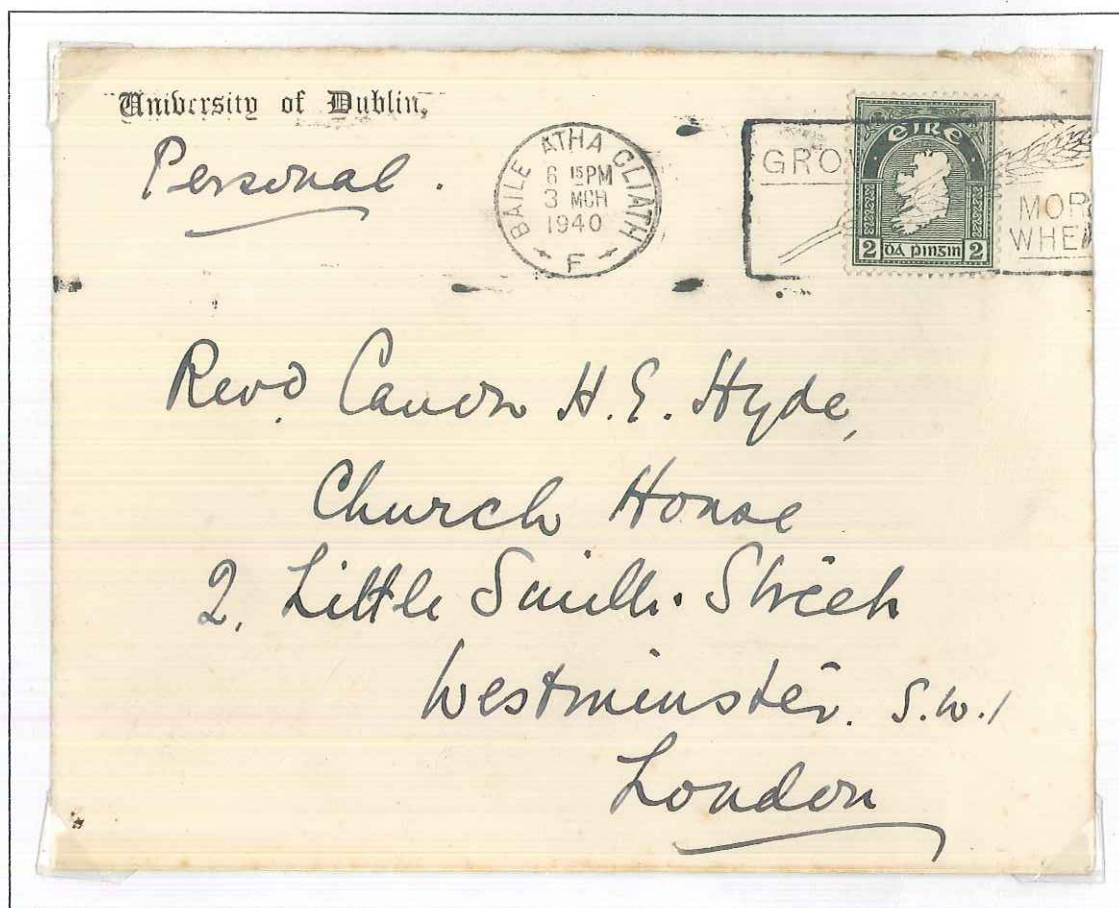 University of Dublin,
Personal.
BAILE ATHA CLIATH
6 15PM
3 MCH
1940
F
GRO
MOR
WHE
EIRE
2 DÁ PINGIN 2
Revd. Canon H. E. Hyde,
Church House
2, Little Smith. Street
Westminster. S.W.1
London